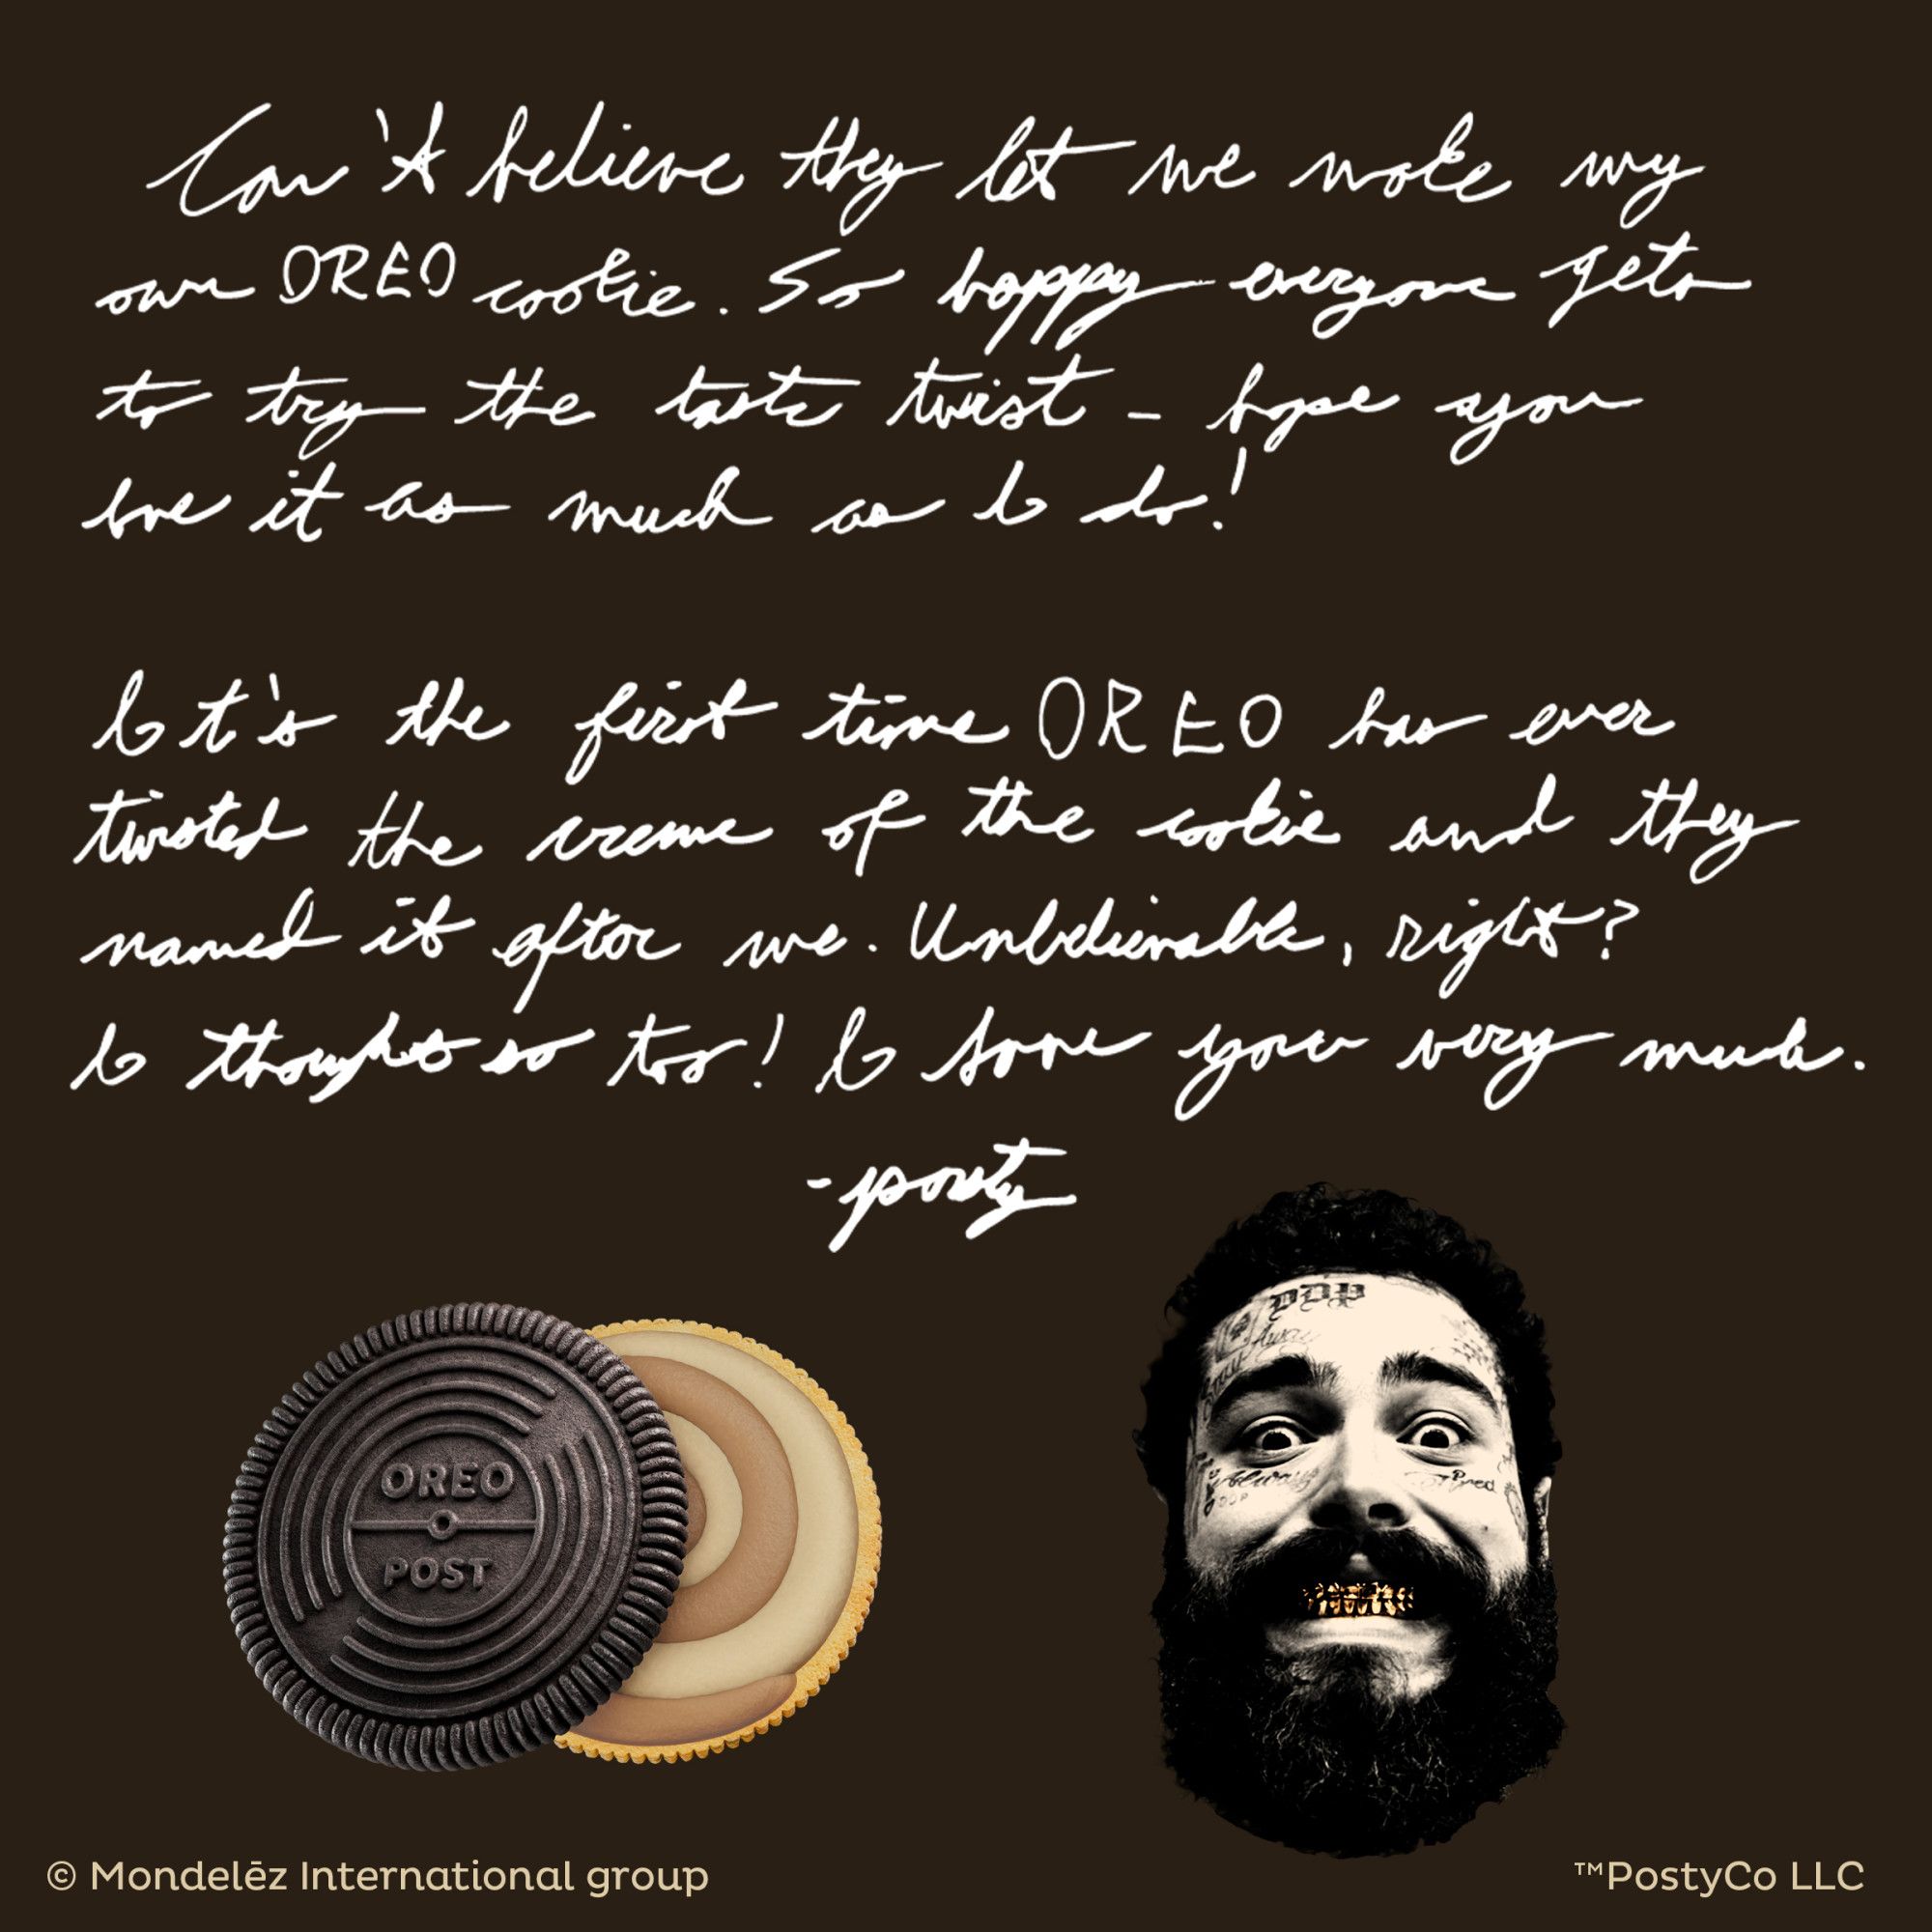 Can't believe they let me make my
own OREO cookie. So happy everyone gets
to try the taste twist - hope you
love it as much as I do!
It's the first time OREO has ever
twisted the creme of the cookie and they
named it after me. Unbelievable, right?
I thought so too! I love you very much.
-posty
DDP
Away
Stay
OREO
POST
Always
Tired
© Mondelēz International group
™PostyCo LLC